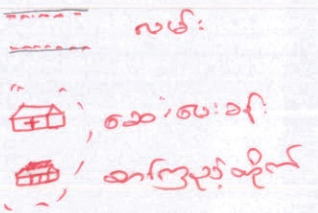 လမ်း
ဆေးပေးခန်း
စာကြည့်တိုက်